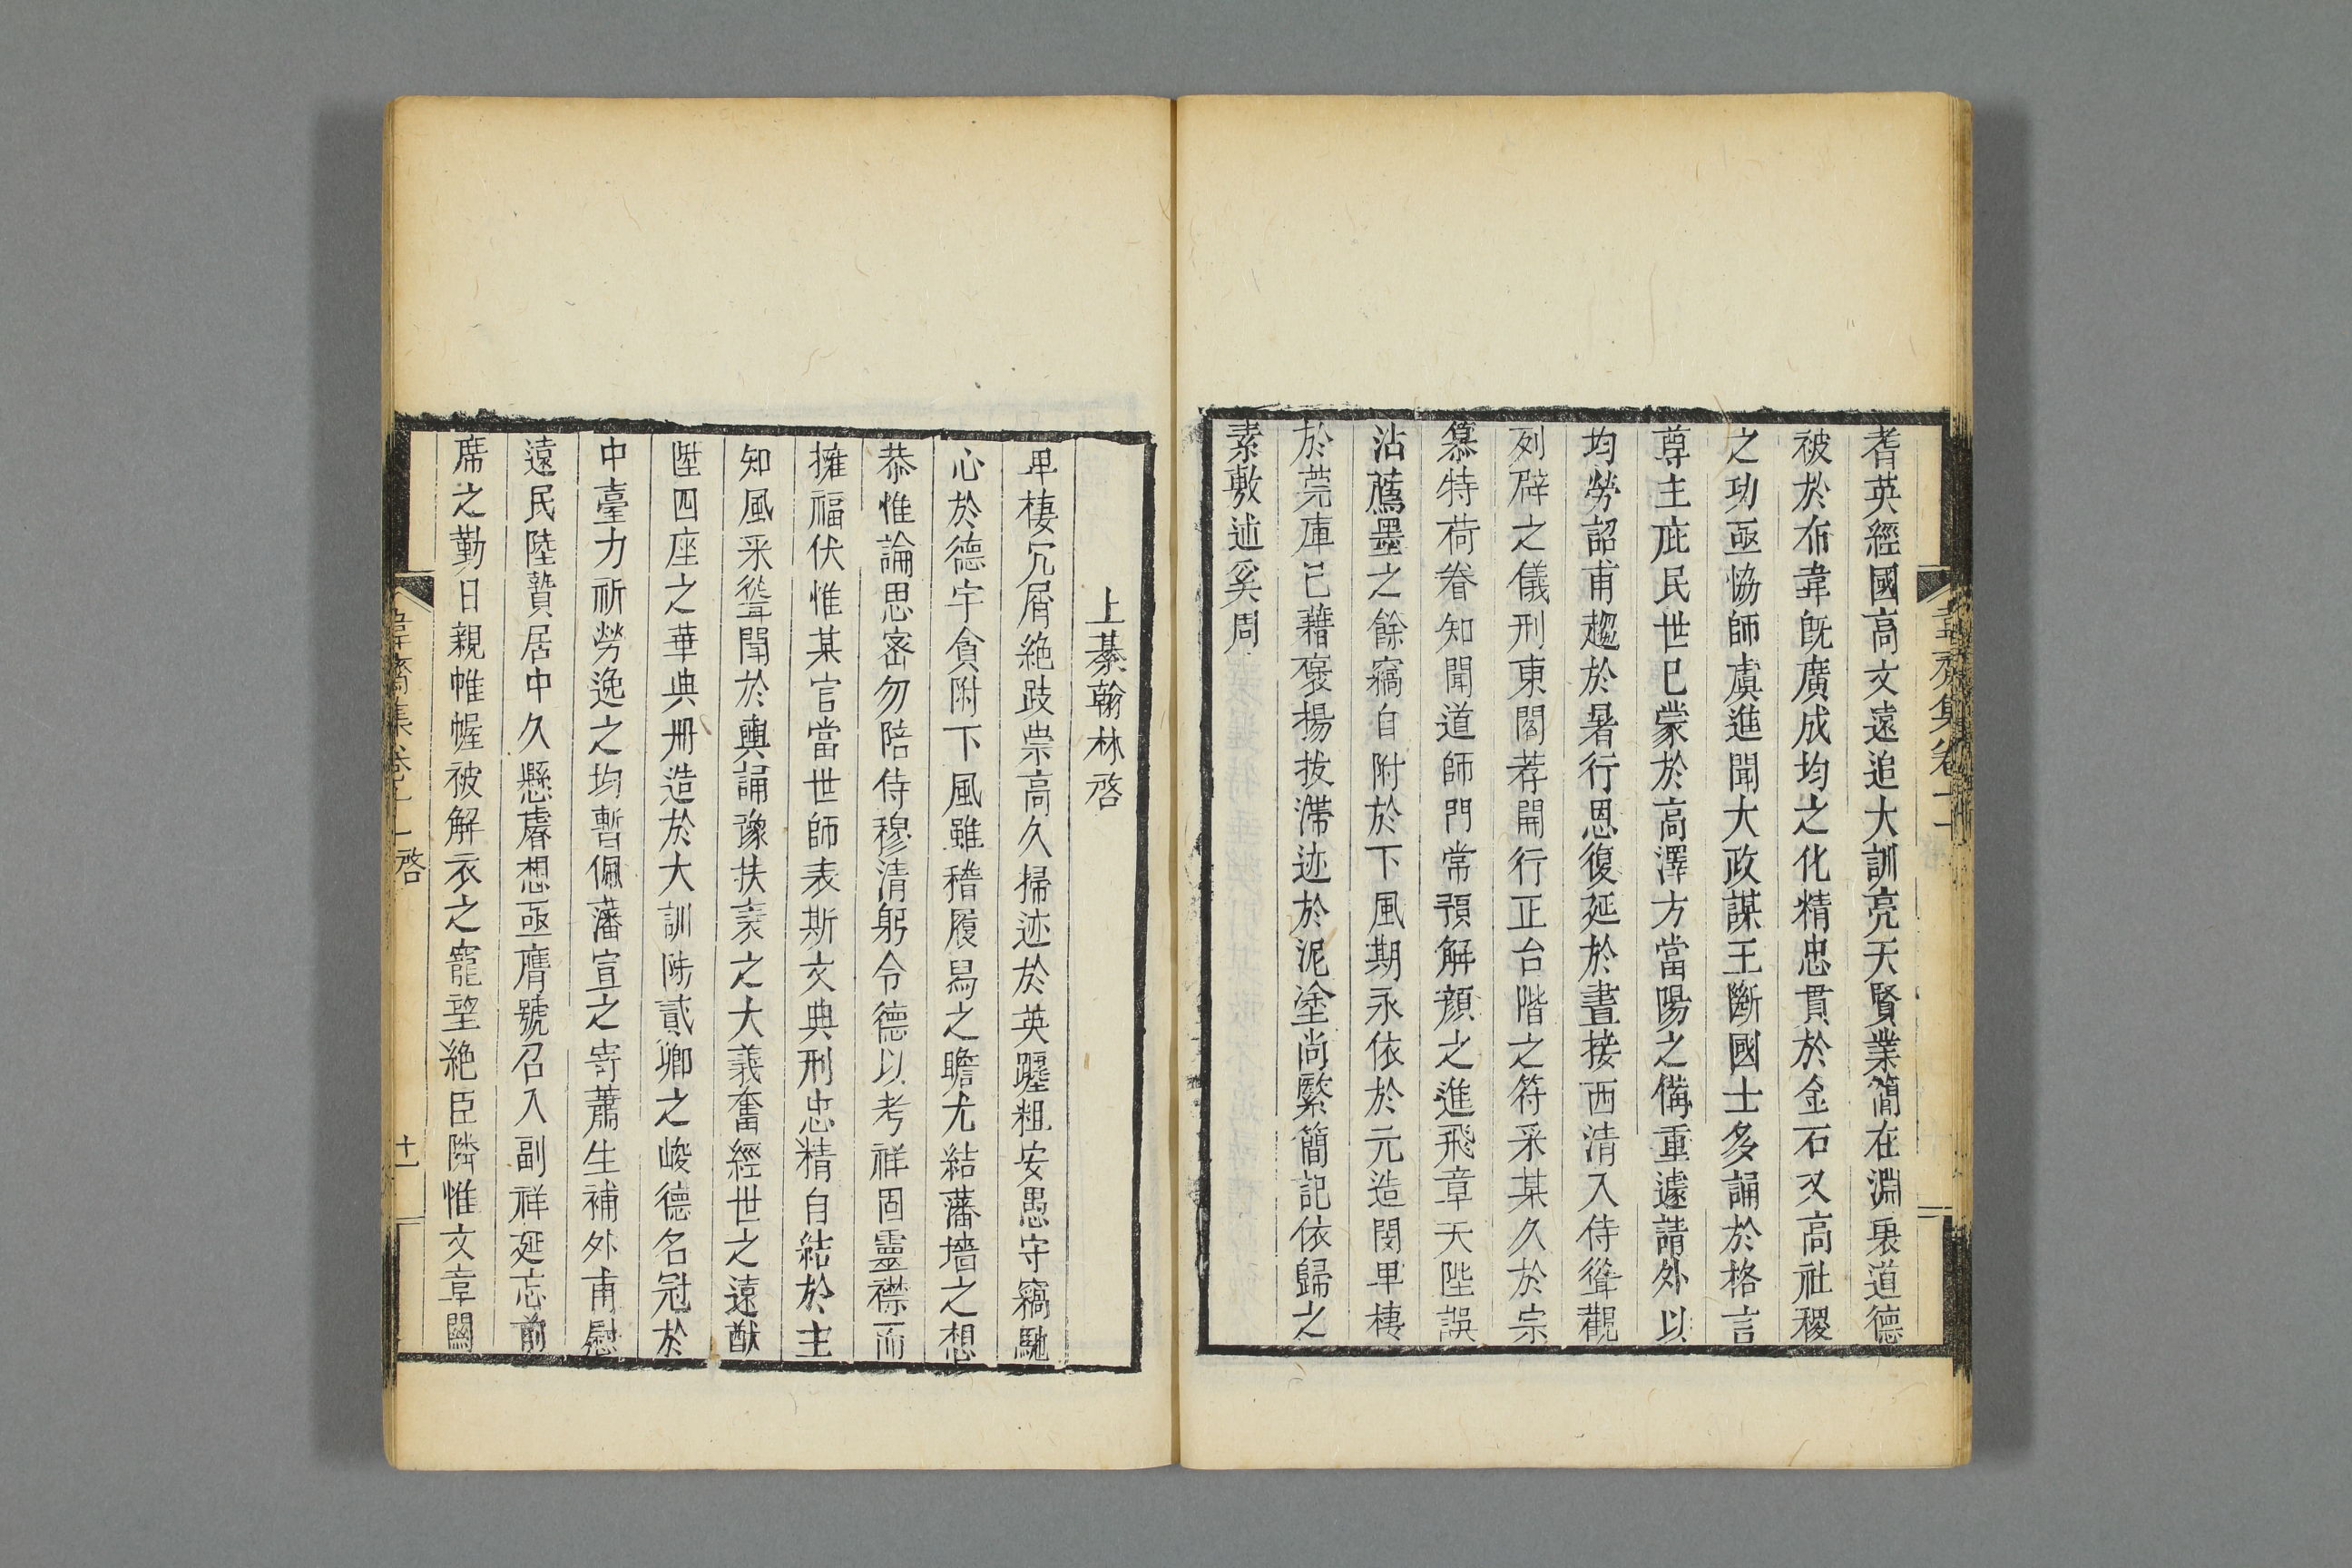 耆英經國高文遠追大訓亮天賢業簡在淵衷道德
被於布韋旣廣成均之化精忠貫於金石又高社稷
之功亟恊師虞進聞大政謀王斷國士多誦於格言
尊主庇民世已蒙於高澤方當陽之備重遽請外以
均勞詔甫趨於暑行恩復延於晝接西清入侍聳觀
列辟之儀刑東閤荐開行正台階之符采某久於宗
慕特荷眷知聞道師門常預解顏之進飛章天陛誤
沾薦墨之餘竊自附於下風期永依於元造閔卑棲
於莞庫已藉褒揚拔滯迹於泥塗尚繄簡記依歸之
素敷述奚周
韋齋集卷十一
上綦翰林啓
卑棲冗屑絶跂崇高久掃迹於英躔粗安愚守竊馳
心於德宇貪附下風雖稽履舄之瞻尤結藩墻之想
恭惟論思密勿陪侍穆清躬令德以考祥固靈襟而
擁福伏惟某官當世師表斯文典刑忠精自結於主
知風采聳聞於輿誦豫扶衰之大義奮經世之遠猷
陞四座之華典冊造於大訓陟貳卿之峻德名冠於
中臺力祈勞逸之均暫佩藩宣之寄蕭生補外甫慰
遠民陸贄居中久懸睿想亟膺號召入副祥延忘前
席之勤日親帷幄被解衣之寵望絶臣隣惟文章闊
韋齋集卷十一 啓
十一